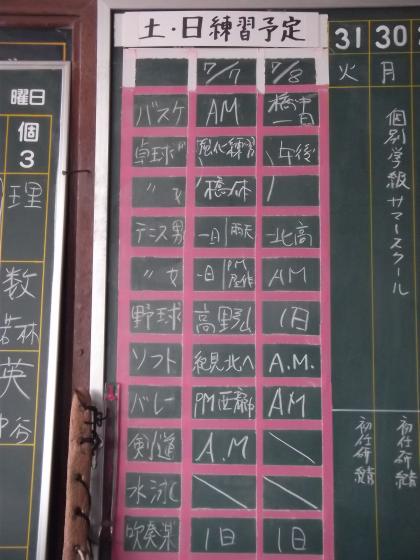 土・日練習予定
7/7 7/8
バスケ AM 橋中 一日
卓球 男 強化練習 午後
〃 女 橋体 /
テニス男 一日 雨天 北高
〃 女 一日 PM AM
野球 高野山 1日
ソフト 紀見北へ A.M.
バレー PM AM
剣道 A.M \
水泳 \ \
吹奏楽 1日 1日
31 30
火 月
個別学級サマースクール
初任研 初任研
曜日
個
3
理
数
若林
英